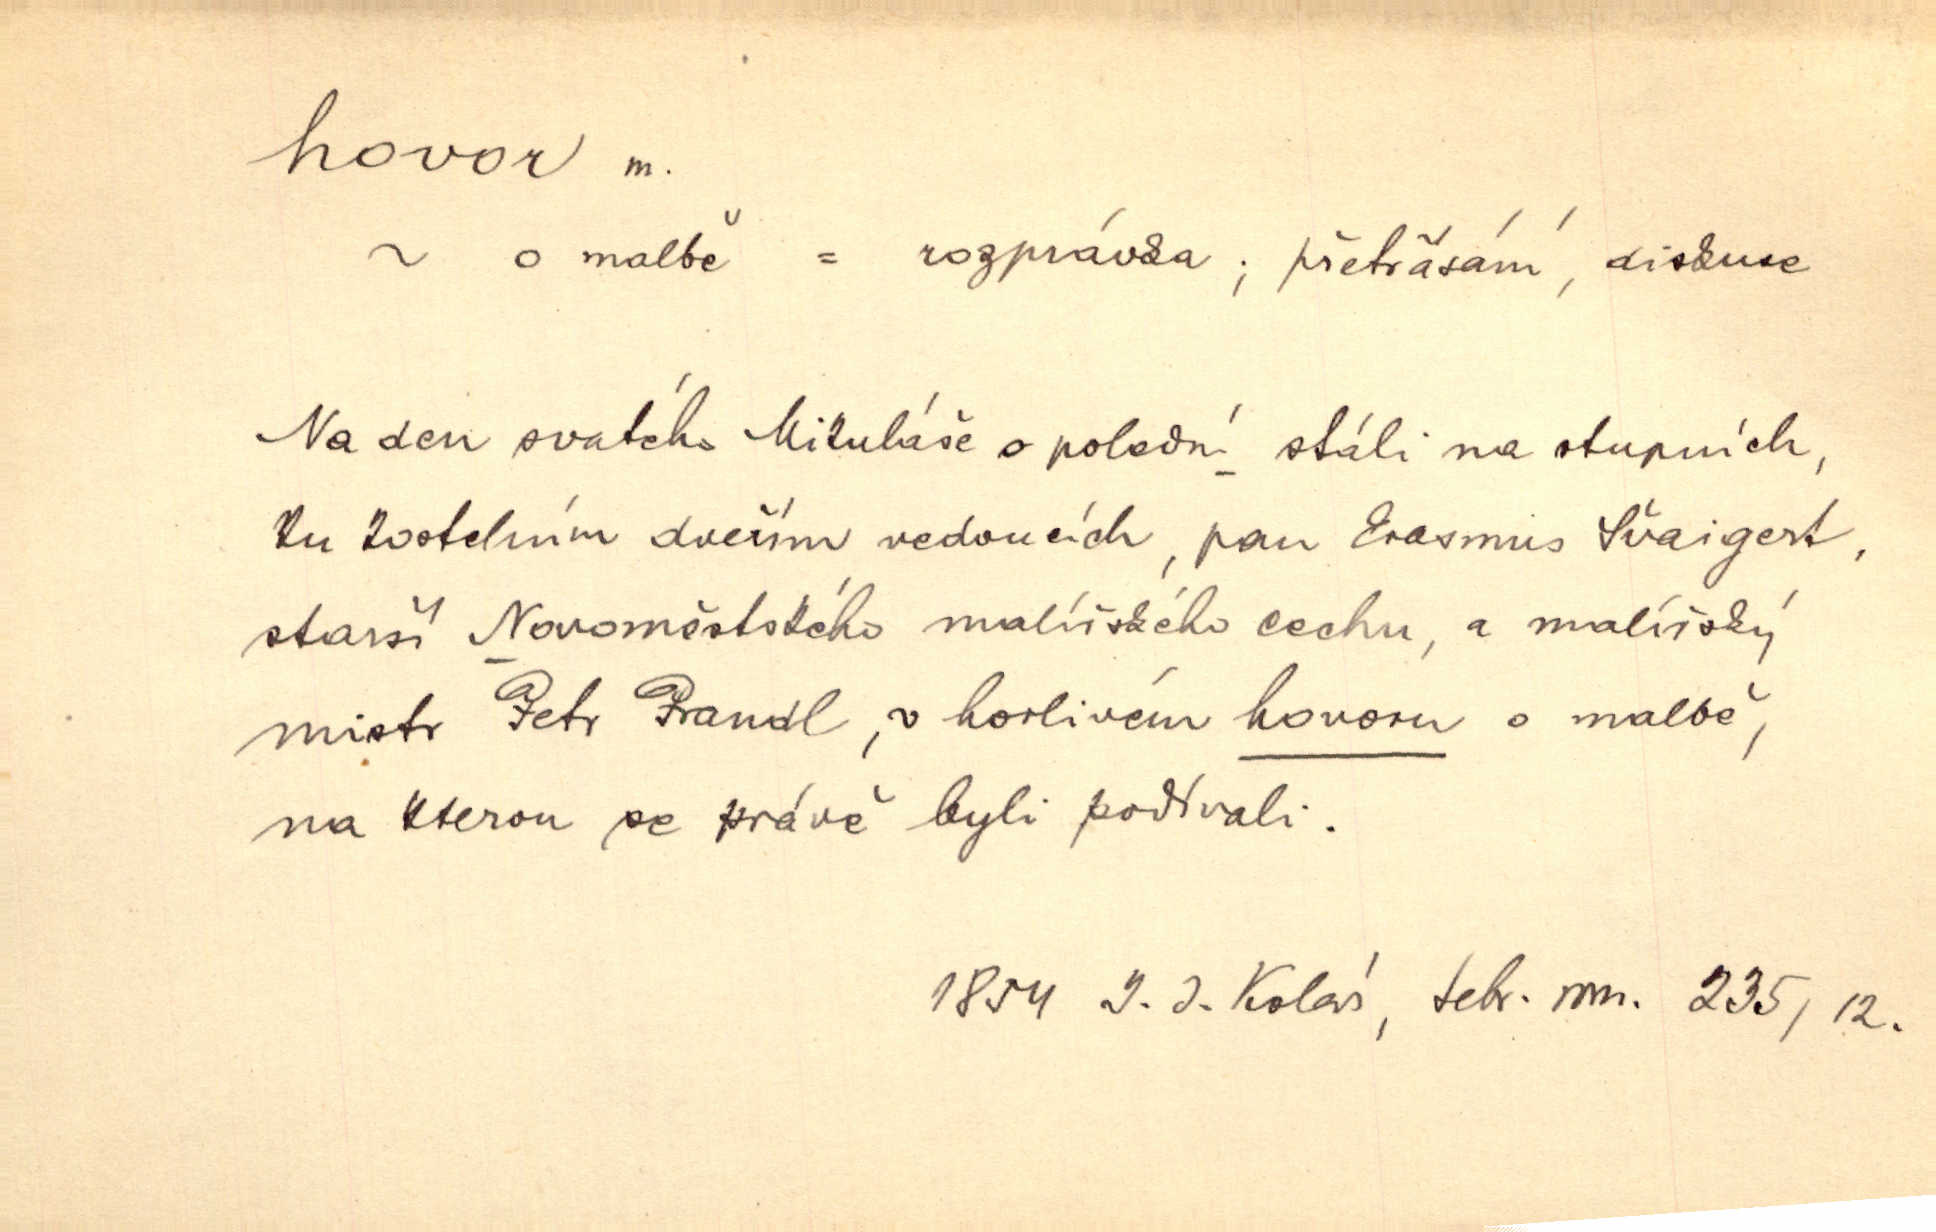 hovor m.
~ o malbě = rozprávka; přetřásání, diskuse
Na den svatého Mikuláše o polední stáli na stupních,
ku kostelním dveřím vedoucích, pan Erasmus Švaigert,
starší Novoměstského malířského cechu, a malířský
mistr Petr Prandl, v horlivém hovoru o malbě,
na kterou se právě byli podívali.
1854 J. J. Kolár, sebr. nov. 235, 12.